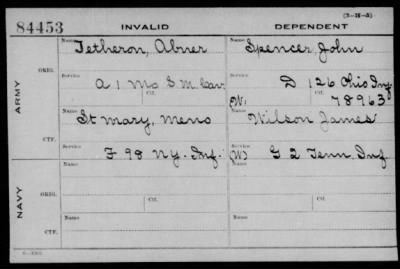 (3-H-A)
84453 INVALID DEPENDENT
Name Tetheron, Abner Name Spencer, John
ORIG. Service A 1 Mo S M Cav Service D 126 Ohio Inf
Ctf. Ctf. 78963
ARMY
(W)
Name St Mary, Meno Name Wilson James
CTF. Service F 98 N.Y. Inf. (W) Service G 2 Tenn Inf
NAVY
Name Name
ORIG. Ctf. Ctf.
Name Name
CTF.